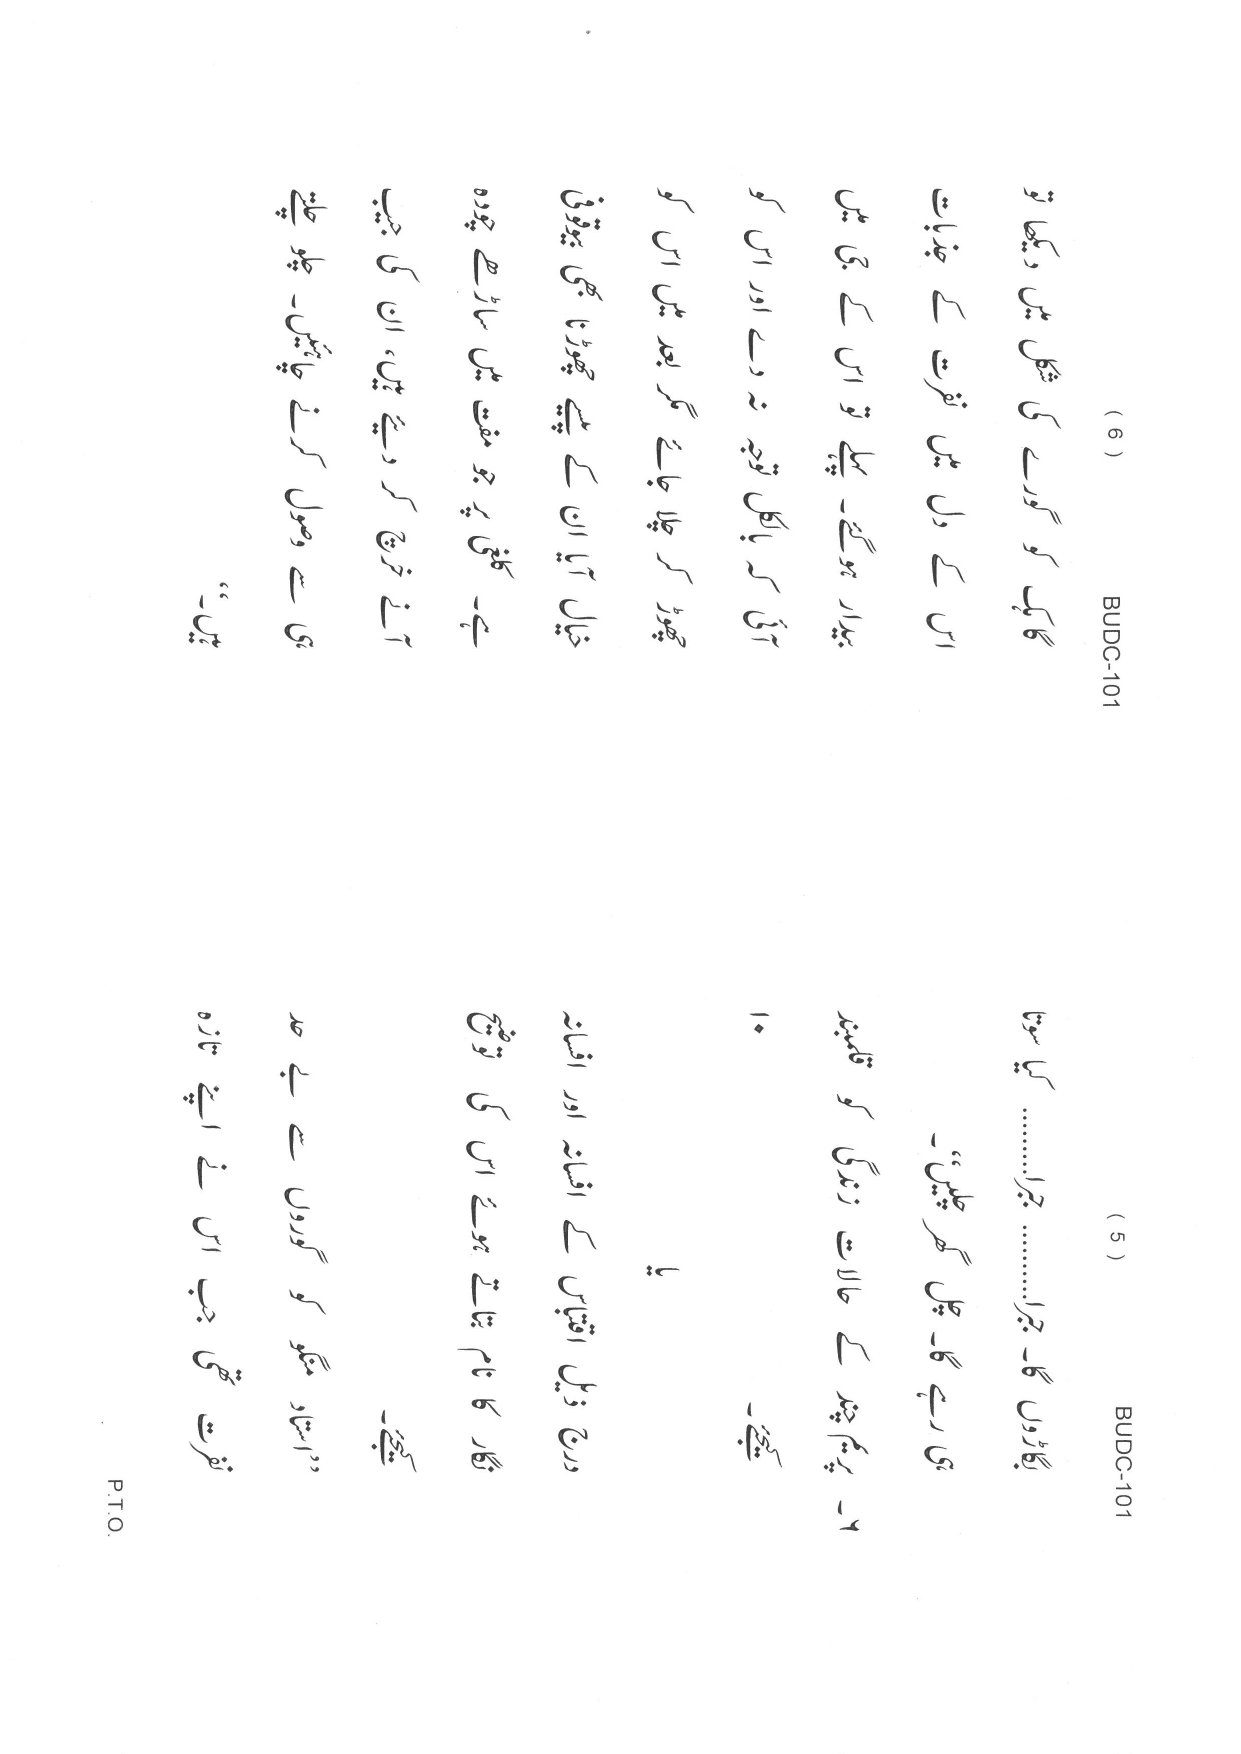 ( 5 ) BUDC-101
بگاڑوں گا۔ جبرا.......... جبرا.......... کیا سوتا
ہی رہے گا۔ چل گھر چلیں‘‘۔
۶۔ پریم چند کے حالات زندگی کو قلمبند
کیجئے۔ ۱۰
یا
درج ذیل اقتباس کے افسانہ اور افسانہ
نگار کا نام بتاتے ہوئے اس کی توضیح
کیجئے۔
’’استاد منگو کو گوروں سے بے حد
نفرت تھی جب اس نے اپنے تازہ
P.T.O.
( 6 ) BUDC-101
گاہک کو گورے کی شکل میں دیکھا تو
اس کے دل میں نفرت کے جذبات
بیدار ہوگئے۔ پہلے تو اس کے جی میں
آئی کہ بالکل توجہ نہ دے اور اس کو
چھوڑ کر چلا جائے مگر بعد میں اس کو
خیال آیا ان کے پیسے چھوڑنا بھی بیوقوفی
ہے۔ کلغی پر جو مفت میں ساڑھے چودہ
آنے خرچ کر دیئے ہیں، ان کی جیب
ہی سے وصول کرنے چاہئیں۔ چلو چلتے
ہیں۔‘‘